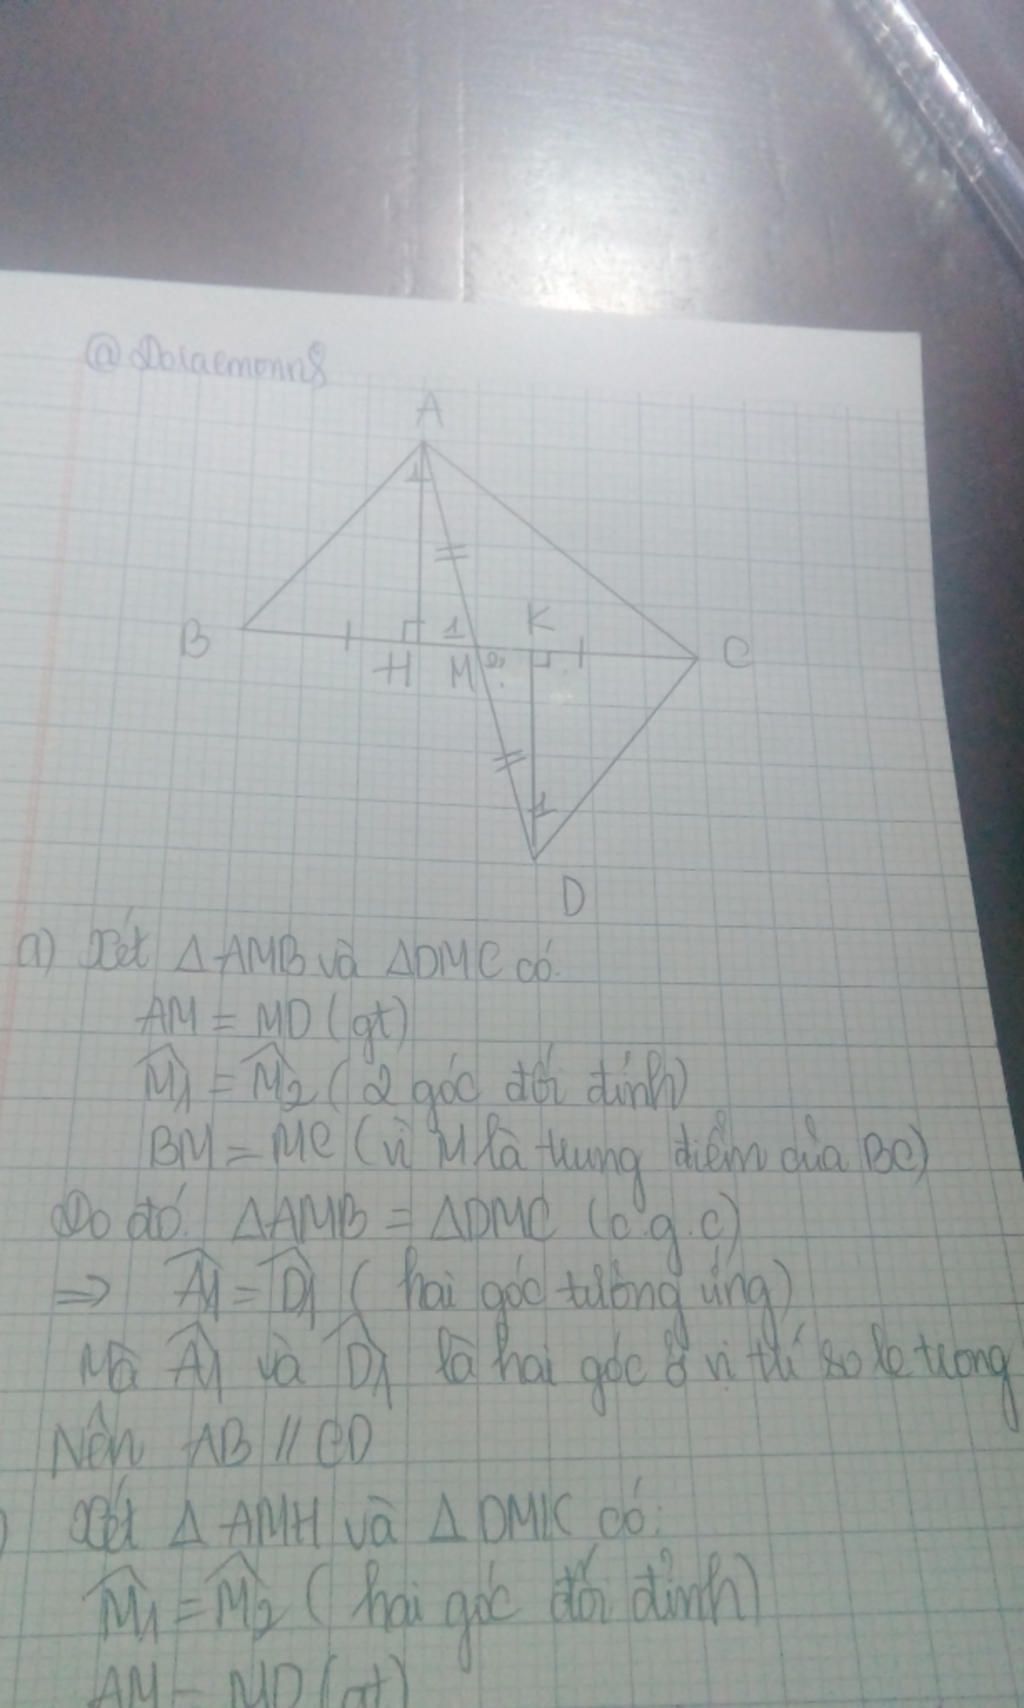 @Doraemonn8
A
1
B
H
1
M
2
K
C
1
D
a) Xét ΔAMB và ΔDMC có:
AM = MD (gt)
M̂1 = M̂2 (2 góc đối đỉnh)
BM = MC (vì M là trung điểm của BC)
Do đó: ΔAMB = ΔDMC (c.g.c)
=> Â1 = D̂1 (hai góc tương ứng)
Mà Â1 và D̂1 là hai góc ở vị trí so le trong
Nên AB // CD
) Xét ΔAMH và ΔDMK có:
M̂1 = M̂2 (hai góc đối đỉnh)
AM = MD (gt)